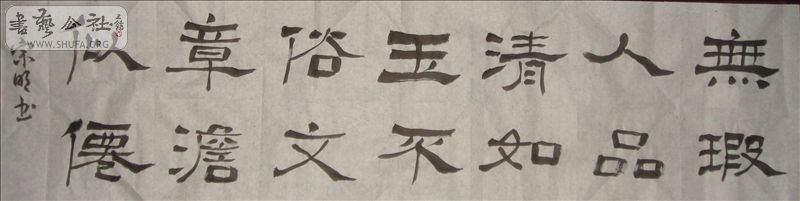 無瑕
人品
清如
玉不
俗文
章澹
似僊
明书
書藝公社
WWW.SHUFA.ORG